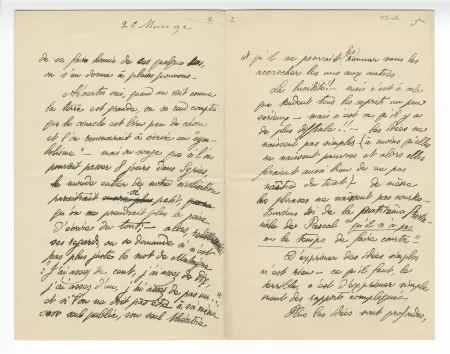 28 Mars 92
5
de se faire honnir de
on s'en donne à pleins poumons.
Ah certes oui, quand on voit comme
la terre est grande on se rend compte
que le cénacle est bien peu de chose
et l'on renoncerait à écrire ou "sym-
boliser" – mais on songe que si l'on
pouvait passer 8 jours dans Syrius,
le monde entier de notre civilisation
paraitrait petit,
qu'on ne prendrait plus la peine
d'écrire du tout – alors,
ses regards, on se demande si n'est
pas plus juste le mot de Montaigne
"j'ai assez de cent, j'ai assez de dix,
j'ai assez d'un, j'ai assez de pas un"
et si l'on ne doit pas être à soi-même
son seul public, son seul théâtre
et qu'il ne pouvait trouver sans les
accrocher les uns aux autres.
La lucidité! – mais c'est à cela
que tendent tous les esprits un peu
sérieux – mais c'est ce qu'il y a
de plus difficile!! – les idées ne
naissent pas simples (à moins qu'elles
ne naissent pauvres et alors elles
feraient aussi bien de ne pas
naître du tout) de même
les phrases ne naissent pas courtes.
de Pascal "qu'il n'a pas
eu le temps de faire courte"
D'exprimer des idées simples
n'est rien – ce qu'il faut, le
terrible c'est d'exprimer simple
ment des rapports compliqués.
Plus les idées sont profondes,